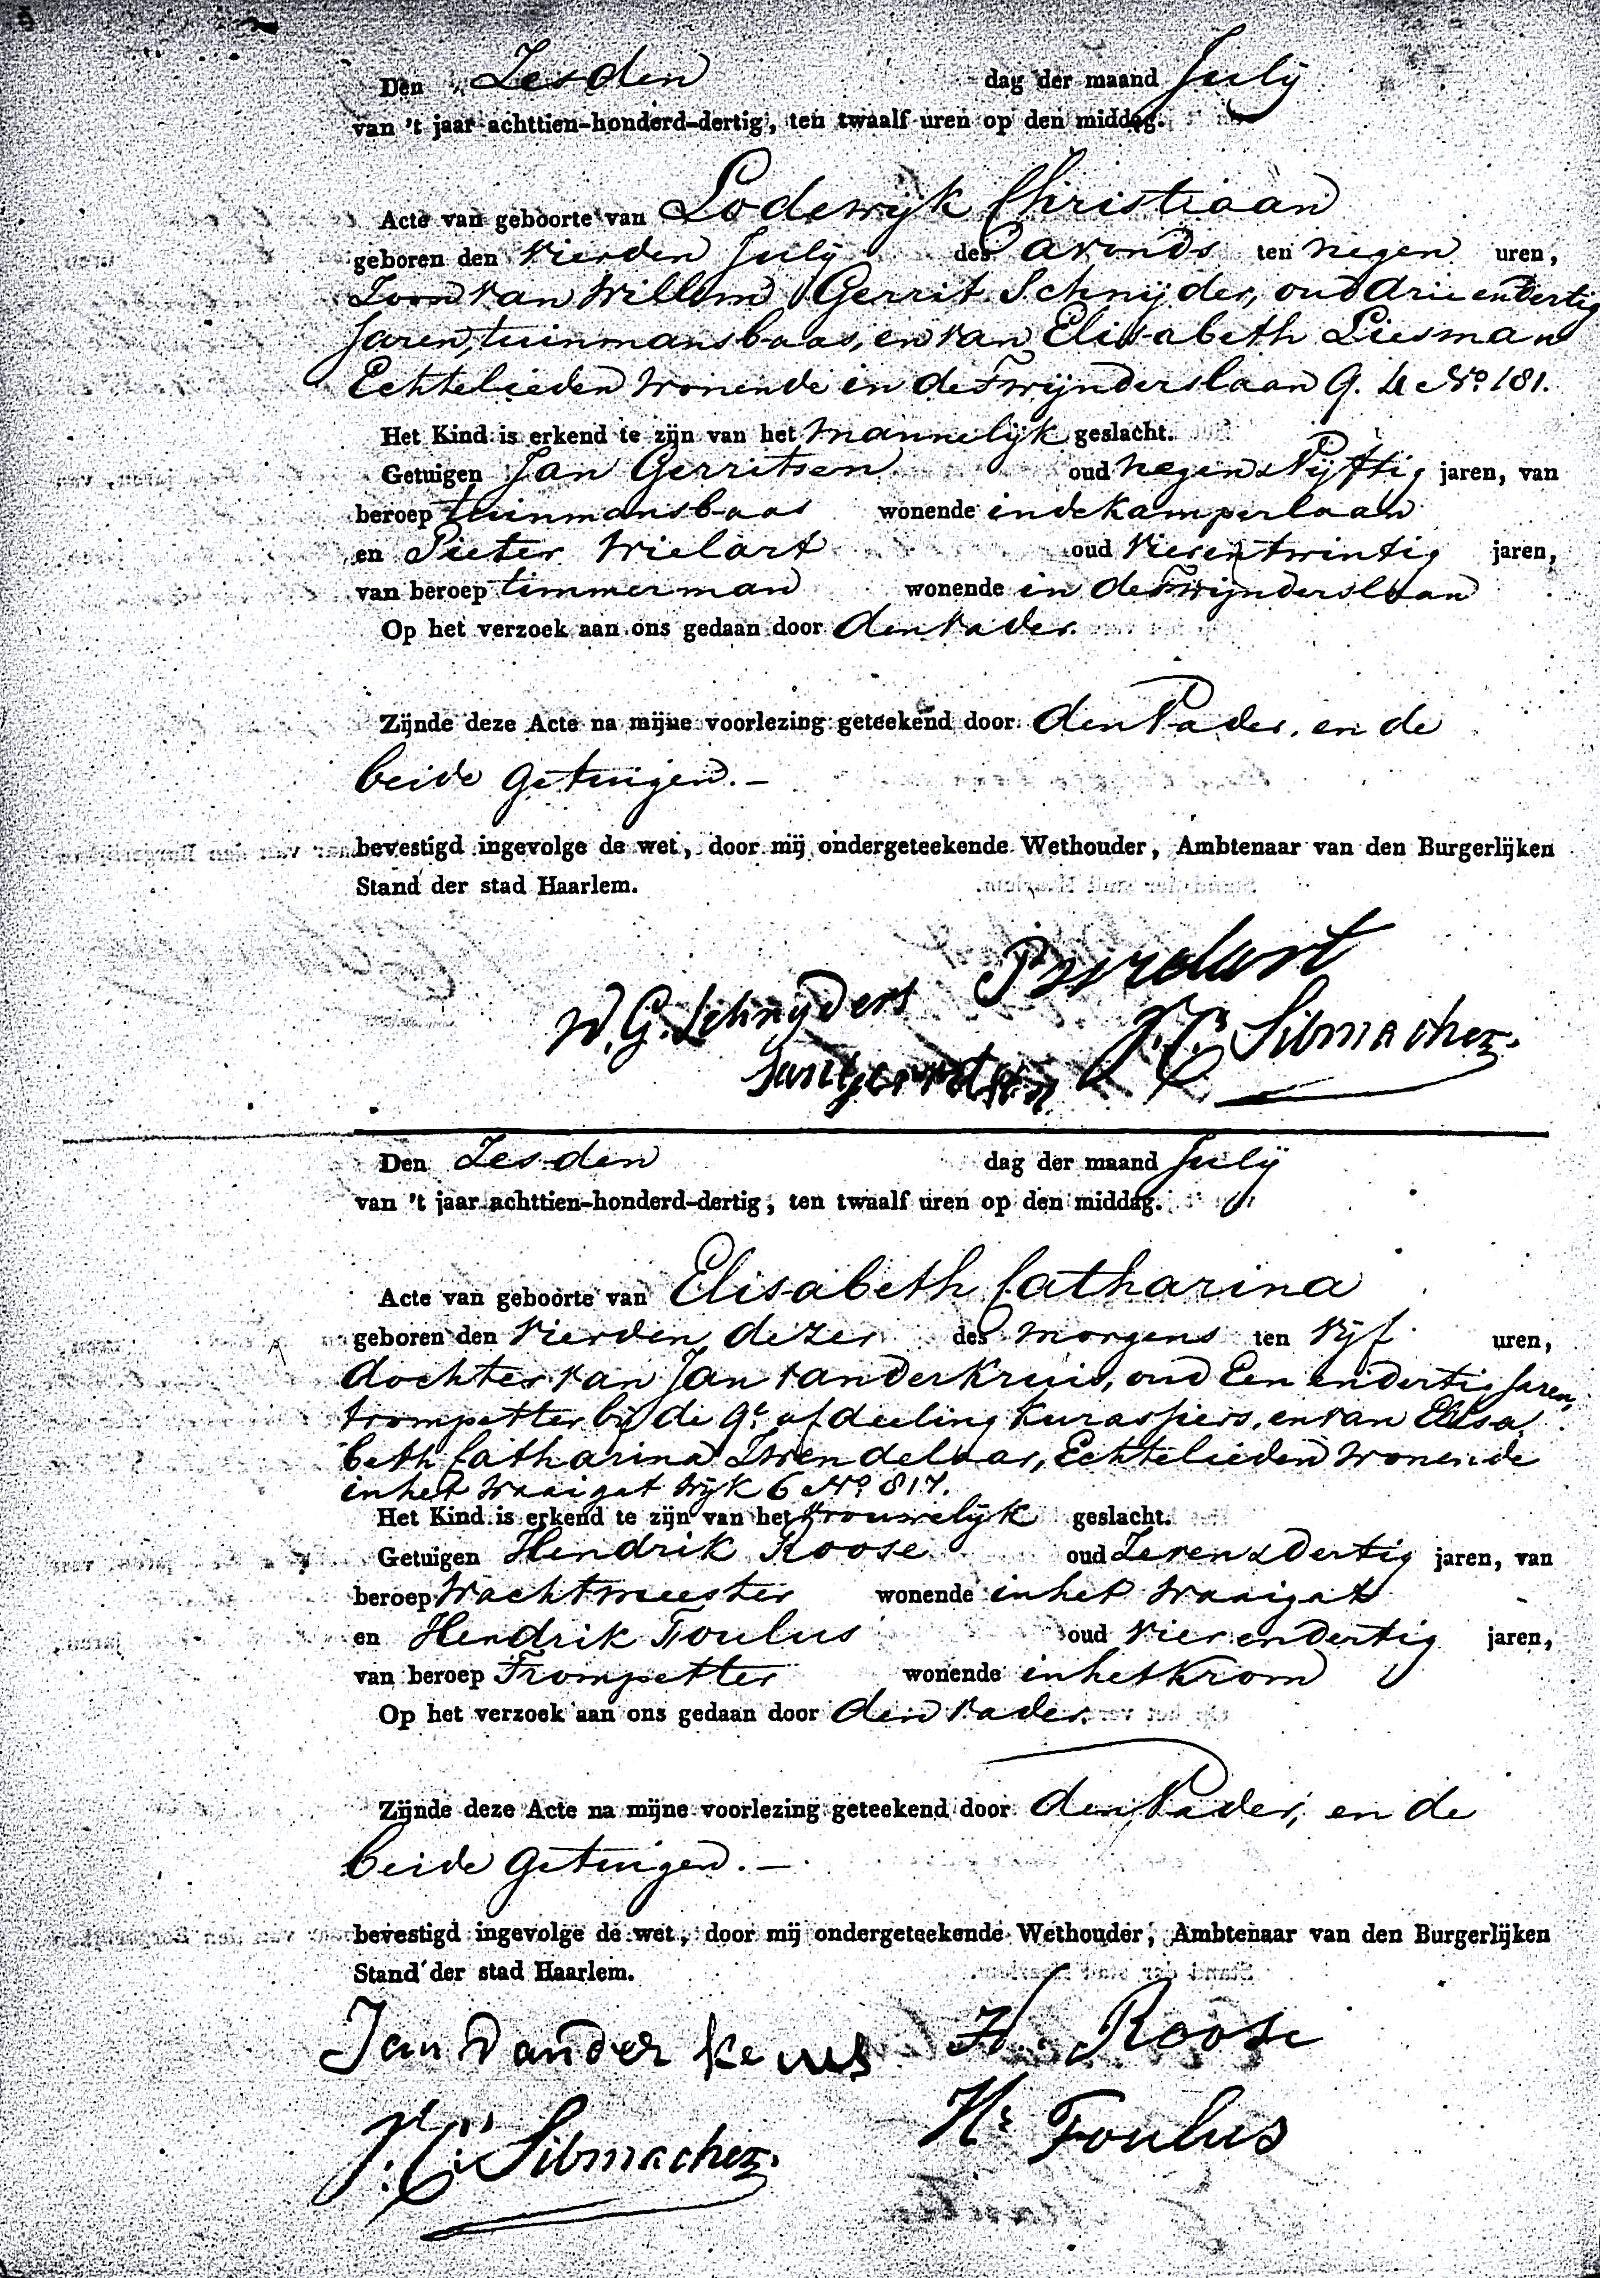 Den Zesden dag der maand July
van 't jaar achttien-honderd-dertig, ten twaalf uren op den middag.
Acte van geboorte van Lodewyk Christiaan
geboren den vierden July des avonds ten negen uren,
Zoon van Willem Gerrit Schnijder, oud drie en dertig
Jaren, tuinmansbaas, en van Elisabeth Liesman
Echtelieden wonende in de wijnderslaan No 181.
Het Kind is erkend te zijn van het mannelyk geslacht.
Getuigen Jan Gerritsen oud negen & Vijftig jaren, van
beroep tuinmansbaas wonende in de Kamperlaan
en Pieter Wielart oud vierentwintig jaren,
van beroep timmerman wonende in de wijnderslaan
Op het verzoek aan ons gedaan door den vader.
Zijnde deze Acte na mijne voorlezing geteekend door den Vader, en de
beide getuigen.—
bevestigd ingevolge de wet, door mij ondergeteekende Wethouder, Ambtenaar van den Burgerlijken
Stand der stad Haarlem.
W. G. Schnyders
Jan Gerritsen Sibmacher
Den Zesden dag der maand July
van 't jaar achttien-honderd-dertig, ten twaalf uren op den middag.
Acte van geboorte van Elisabeth Catharina
geboren den vierden dezer des morgens ten vyf uren,
dochter van Jan van der Kruis, oud Een en dertig Jaren,
trompetter by de 9e afdeeling Kurassiers, en van Elisa
beth Catharina Zwendelaar, Echtelieden wonende
in het Waaigat Wyk 6 No 817.
Het Kind is erkend te zijn van het vrouwelyk geslacht.
Getuigen Hendrik Roose oud Zeven & Dertig jaren, van
beroep Wachtmeester wonende in het Waaigat
en Hendrik Foulus oud vier en dertig jaren,
van beroep Trompetter wonende in het Krom
Op het verzoek aan ons gedaan door den vader.
Zijnde deze Acte na mijne voorlezing geteekend door den Vader, en de
beide getuigen.—
bevestigd ingevolge de wet, door mij ondergeteekende Wethouder, Ambtenaar van den Burgerlijken
Stand der stad Haarlem.
Jan Vander H. Roose
Sibmacher Hk Foulus